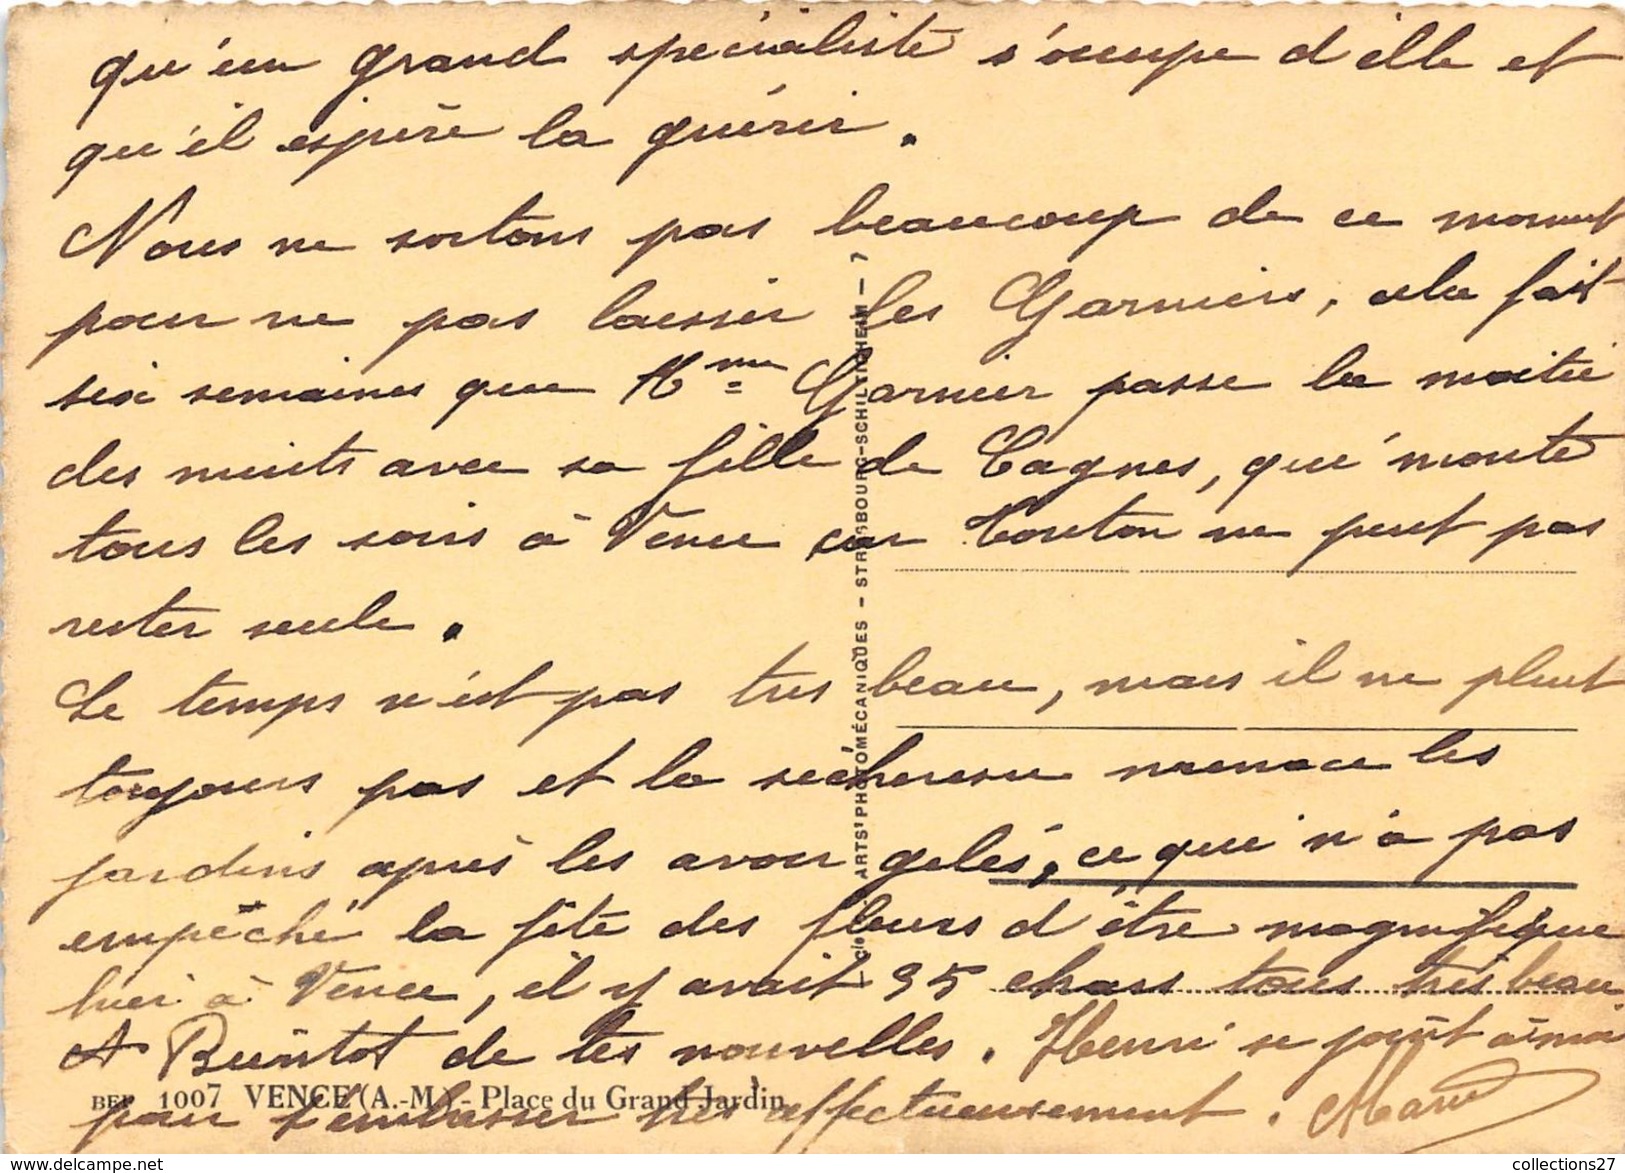 qu'un grand spécialiste s'occupe d'elle et
qu'il espère la guérir.
Nous ne sortons pas beaucoup de ce moment
pour ne pas laisser les Garniers, cela fait
six semaines que Mme Garnier passe la moitié
des nuits avec sa fille de Cagnes, qui monte
tous les soirs à Vence car Touton ne peut pas
rester seule.
Le temps n'est pas très beau, mais il ne pleut
toujours pas et la sécheresse menace les
jardins après les avoir gelés, ce qui n'a pas
empêché la fête des fleurs d'être magnifique
hier à Vence, il y avait 35 chars tous très beau
A Bientôt de tes nouvelles. Henri se joint à moi
pour t'embrasser très affectueusement. Marie
BEP 1007 VENCE (A.-M.) - Place du Grand Jardin
Cie ARTS PHOTOMÉCANIQUES - STRASBOURG-SCHILTIGHEIM - 7
collections27